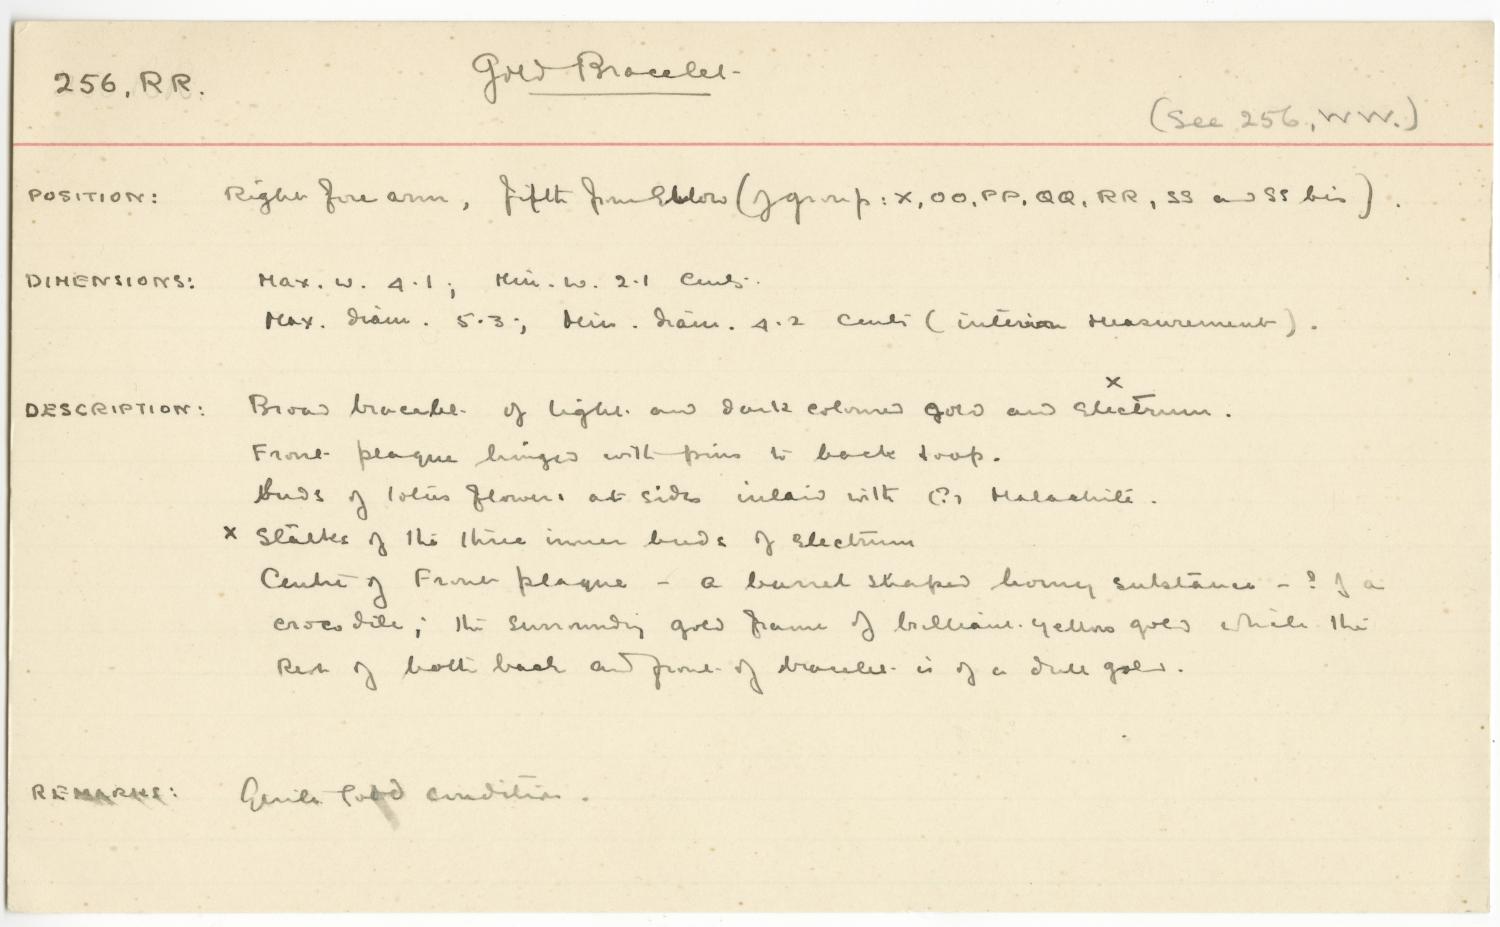 256, RR.
Gold Bracelet
(See 256, WW.)
POSITION: Right fore arm, fifth from Elbow (of group: X, OO, PP, QQ, RR, SS and SS bis).
DIMENSIONS: Max. w. 4.1; Min. w. 2.1 cents.
Max. diam. 5.3; Min. diam. 4.2 cents (interior measurement).
x
DESCRIPTION: Broad bracelet of light and dark coloured gold and Electrum.
Front plaque hinged with pins to back hoop.
Buds of lotus flowers at sides inlaid with (?) Malachite.
x Stalks of the three inner buds of Electrum
Centre of Front plaque - a barrel shaped horny substance - ? of a
crocodile; the surrounding gold frame of brilliant yellow gold while the
Rest of both back and front of bracelet is of a dull gold.
REMARKS: Quite Good condition.